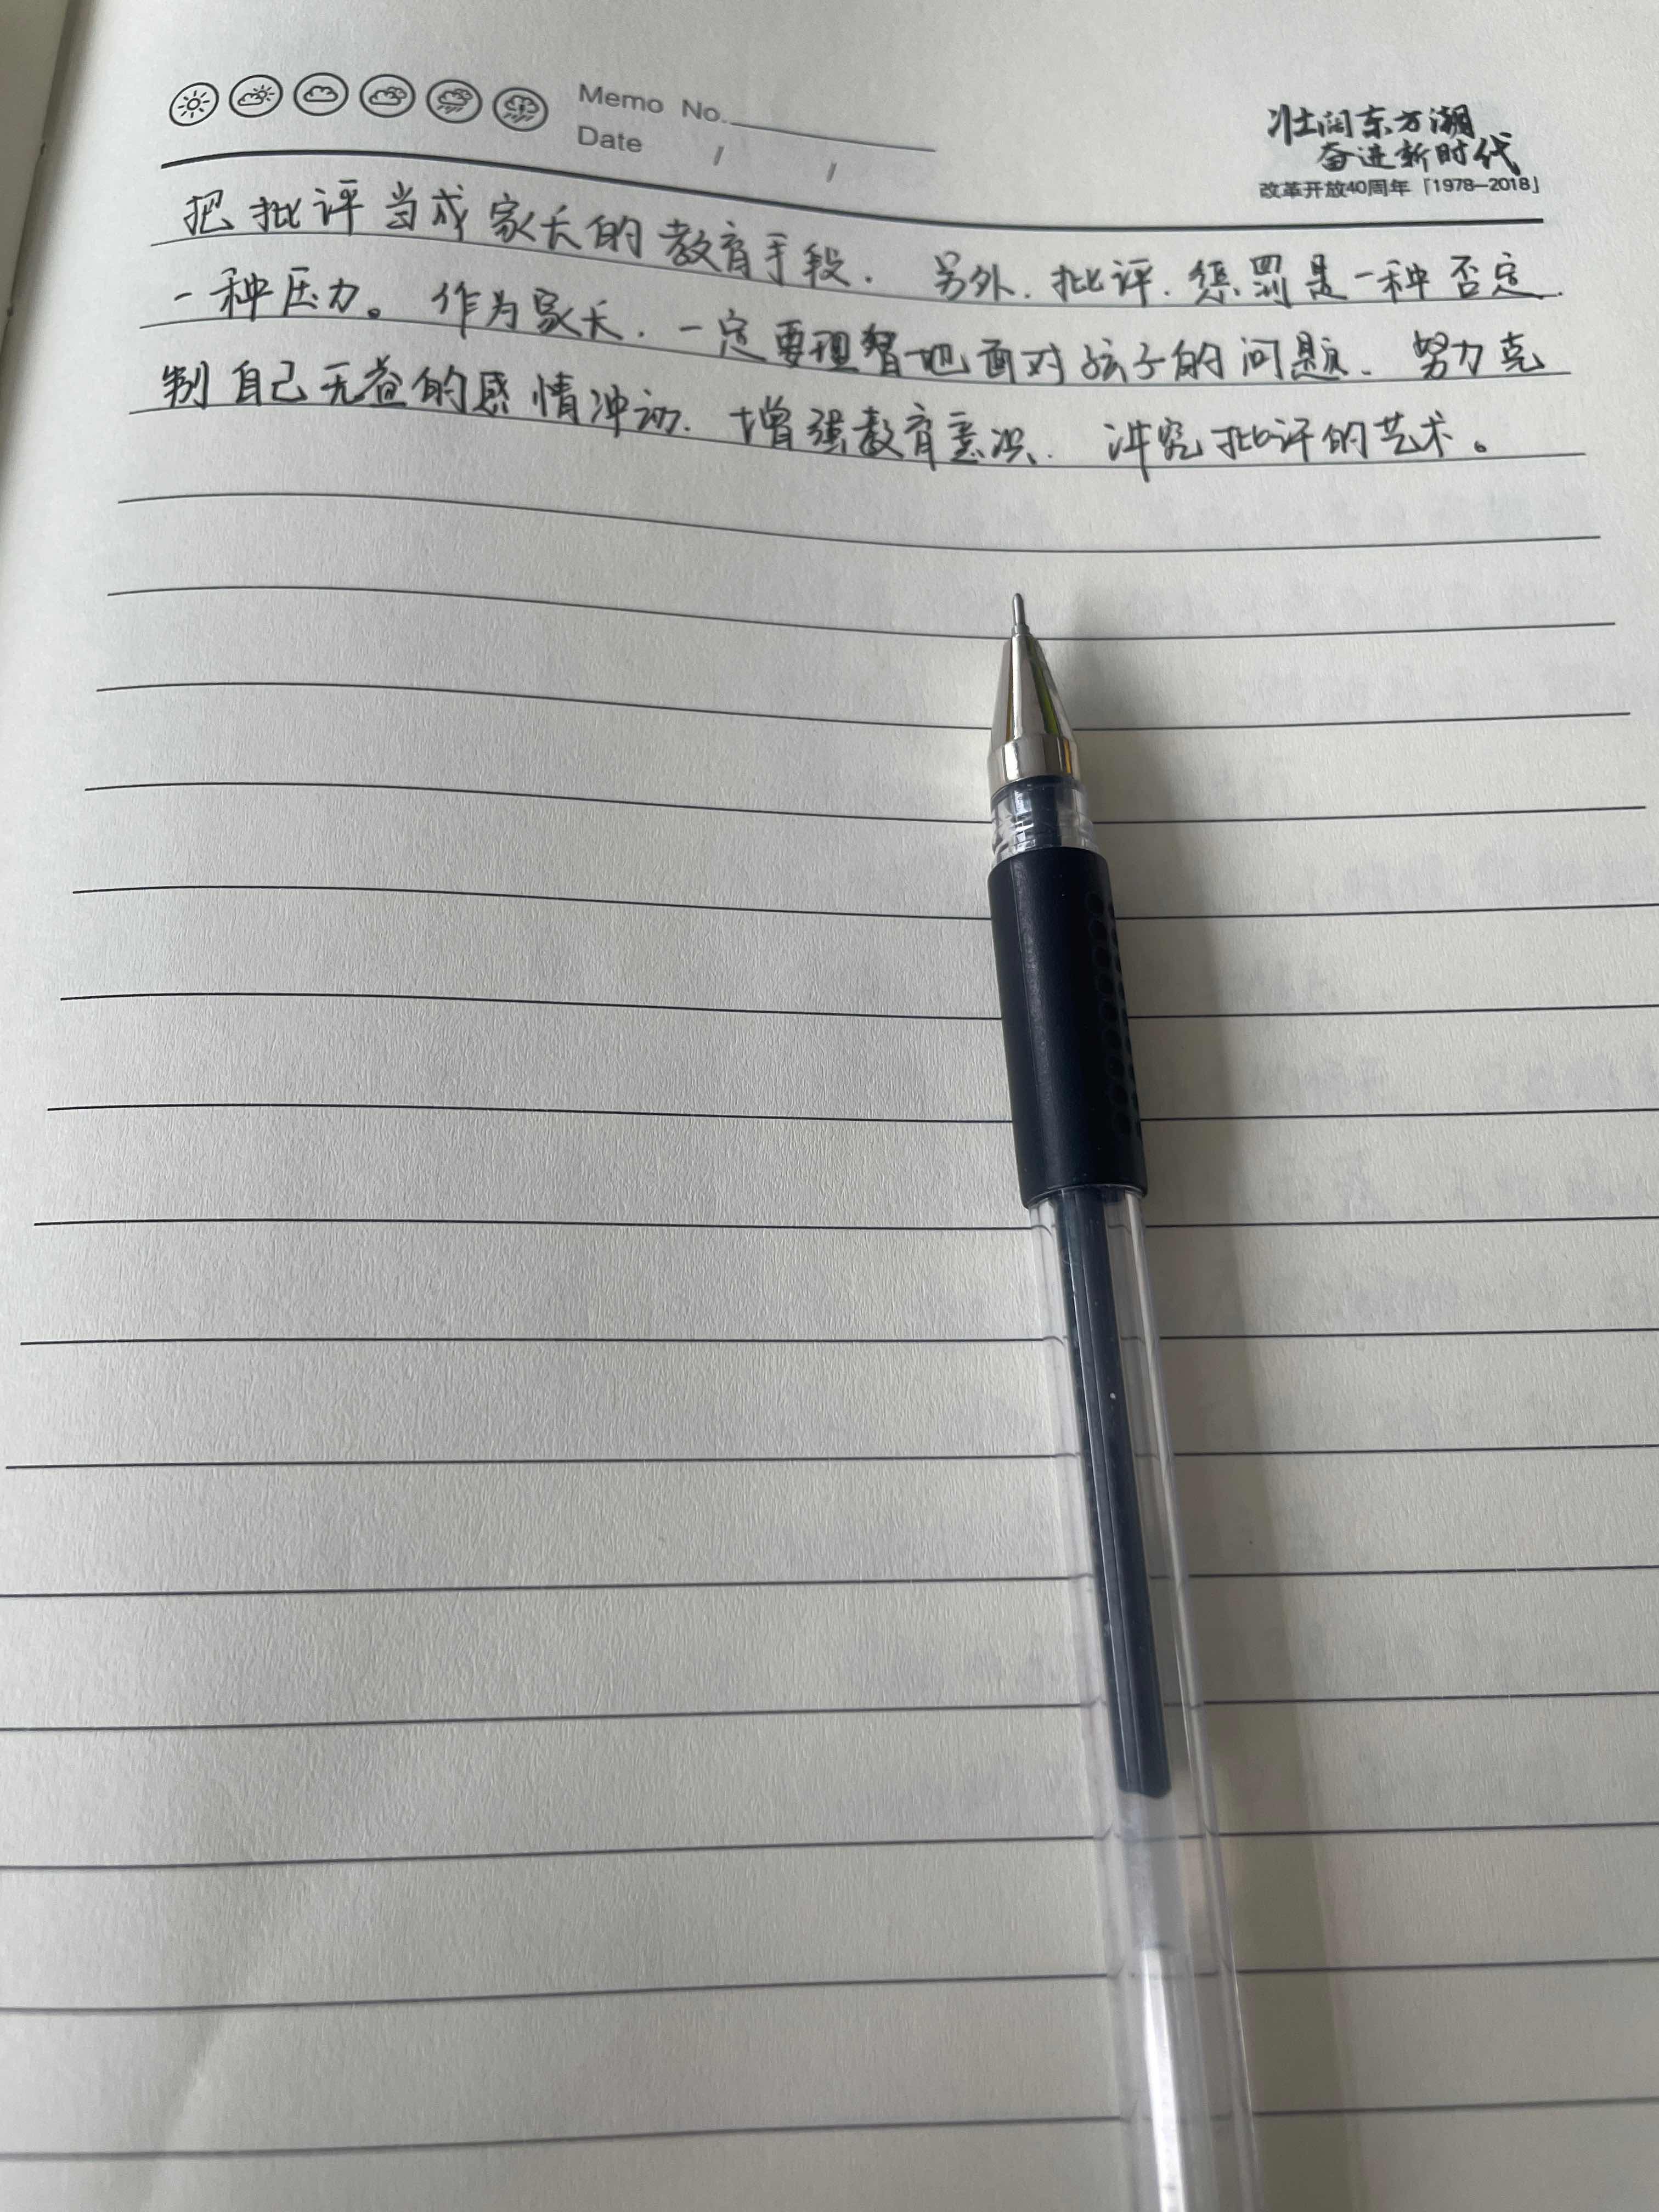 Memo No.
Date / /
壮阔东方潮
奋进新时代
改革开放40周年「1978—2018」
把批评当成家长的教育手段. 另外. 批评. 惩罚是一种否定.
一种压力。作为家长. 一定要理智地面对孩子的问题. 努力克
制自己无益的感情冲动. 增强教育意识. 讲究批评的艺术。